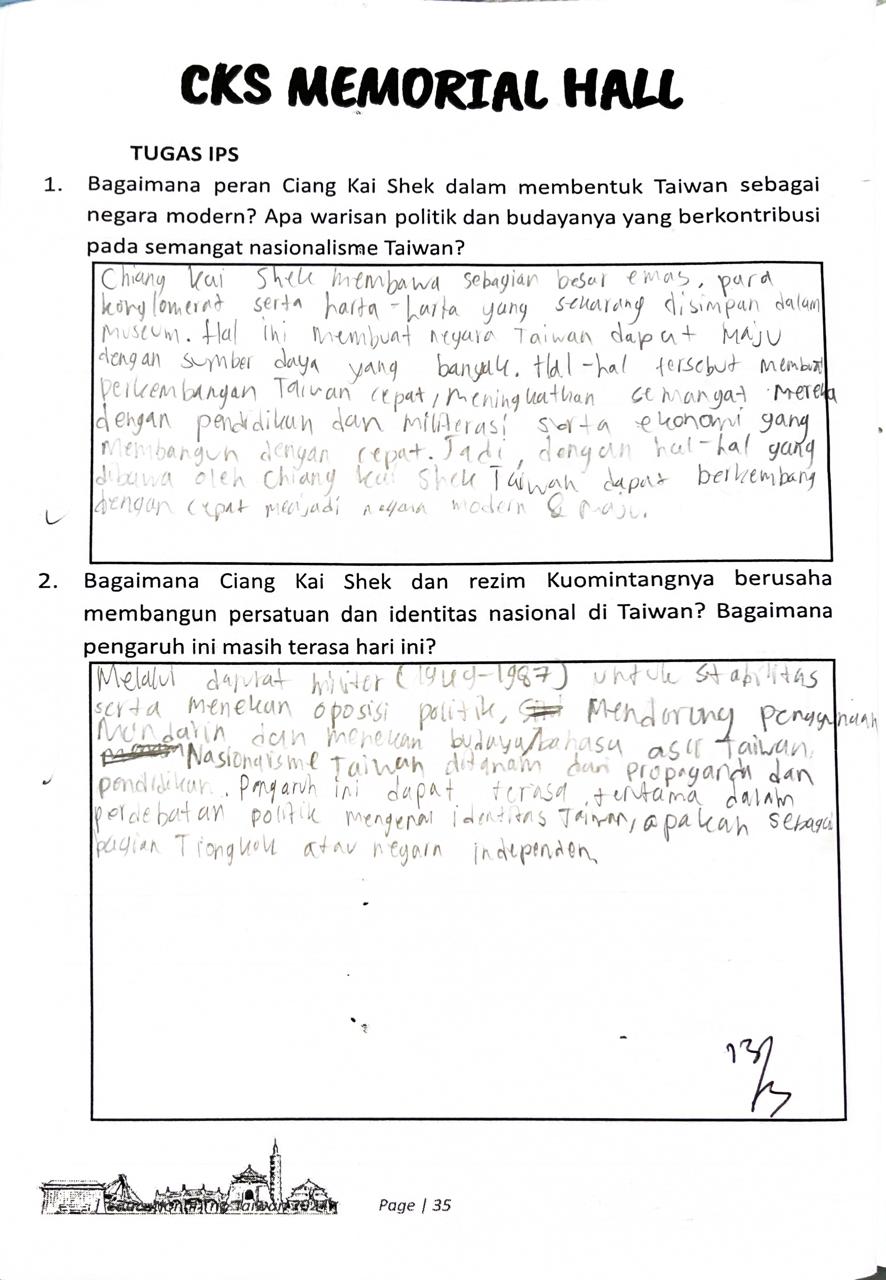 CKS MEMORIAL HALL
TUGAS IPS
1. Bagaimana peran Ciang Kai Shek dalam membentuk Taiwan sebagai
negara modern? Apa warisan politik dan budayanya yang berkontribusi
pada semangat nasionalisme Taiwan?
Chiang Kai Shek membawa sebagian besar emas, para
konglomerat serta harta-harta yang sekarang disimpan dalam
museum. Hal ini membuat negara Taiwan dapat maju
dengan sumber daya yang banyak. Hal-hal tersebut membuat
perkembangan Taiwan cepat, meningkatkan semangat mereka
dengan pendidikan dan militerasi serta ekonomi yang
membangun dengan cepat. Jadi, dengan hal-hal yang
dibawa oleh Chiang Kai Shek Taiwan dapat berkembang
dengan cepat menjadi negara modern & maju.
2. Bagaimana Ciang Kai Shek dan rezim Kuomintangnya berusaha
membangun persatuan dan identitas nasional di Taiwan? Bagaimana
pengaruh ini masih terasa hari ini?
Melalui darurat militer (1949-1987) untuk stabilitas
serta menekan oposisi politik, Mendorong penggunaan
Mandarin dan menekan budaya/bahasa asli Taiwan.
Nasionalisme Taiwan ditanam dari propaganda dan
pendidikan. Pengaruh ini dapat terasa, terutama dalam
perdebatan politik mengenai identitas Taiwan, apakah sebagai
bagian Tiongkok atau negara independen
13/3
Page | 35